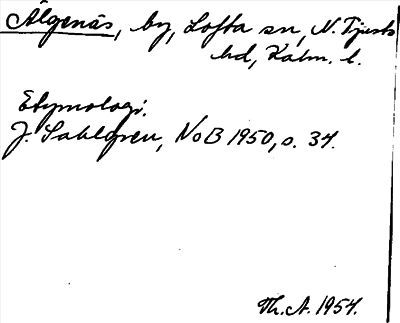 Älgenäs, by, Lofta sn, N. Tjusts
hd, Kalm. l.
Etymologi.
J. Sahlgren, NoB 1950, s. 34.
Th. A. 1954.